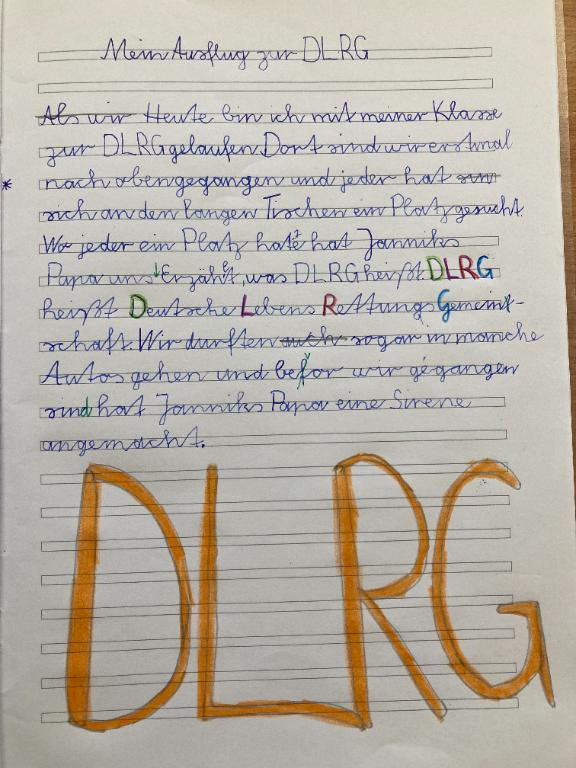 Mein Ausflug zur DLRG
Als wir Heute bin ich mit meiner Klasse
zur DLRG gelaufen. Dort sind wir erstmal
* nach oben gegangen und jeder hat
sich an den langen Tischen ein Platz gesucht.
Wo jeder ein Platz hate hat Janniks
Papa uns Erzählt, was DLRG heißt. DLRG
heißt Deutsche Lebens Rettungs Gemeint-
schaft. Wir durften auch sogar in manche
Autos gehen und befor wir gegangen
sind hat Janniks Papa eine Sirene
angemacht.
DLRG